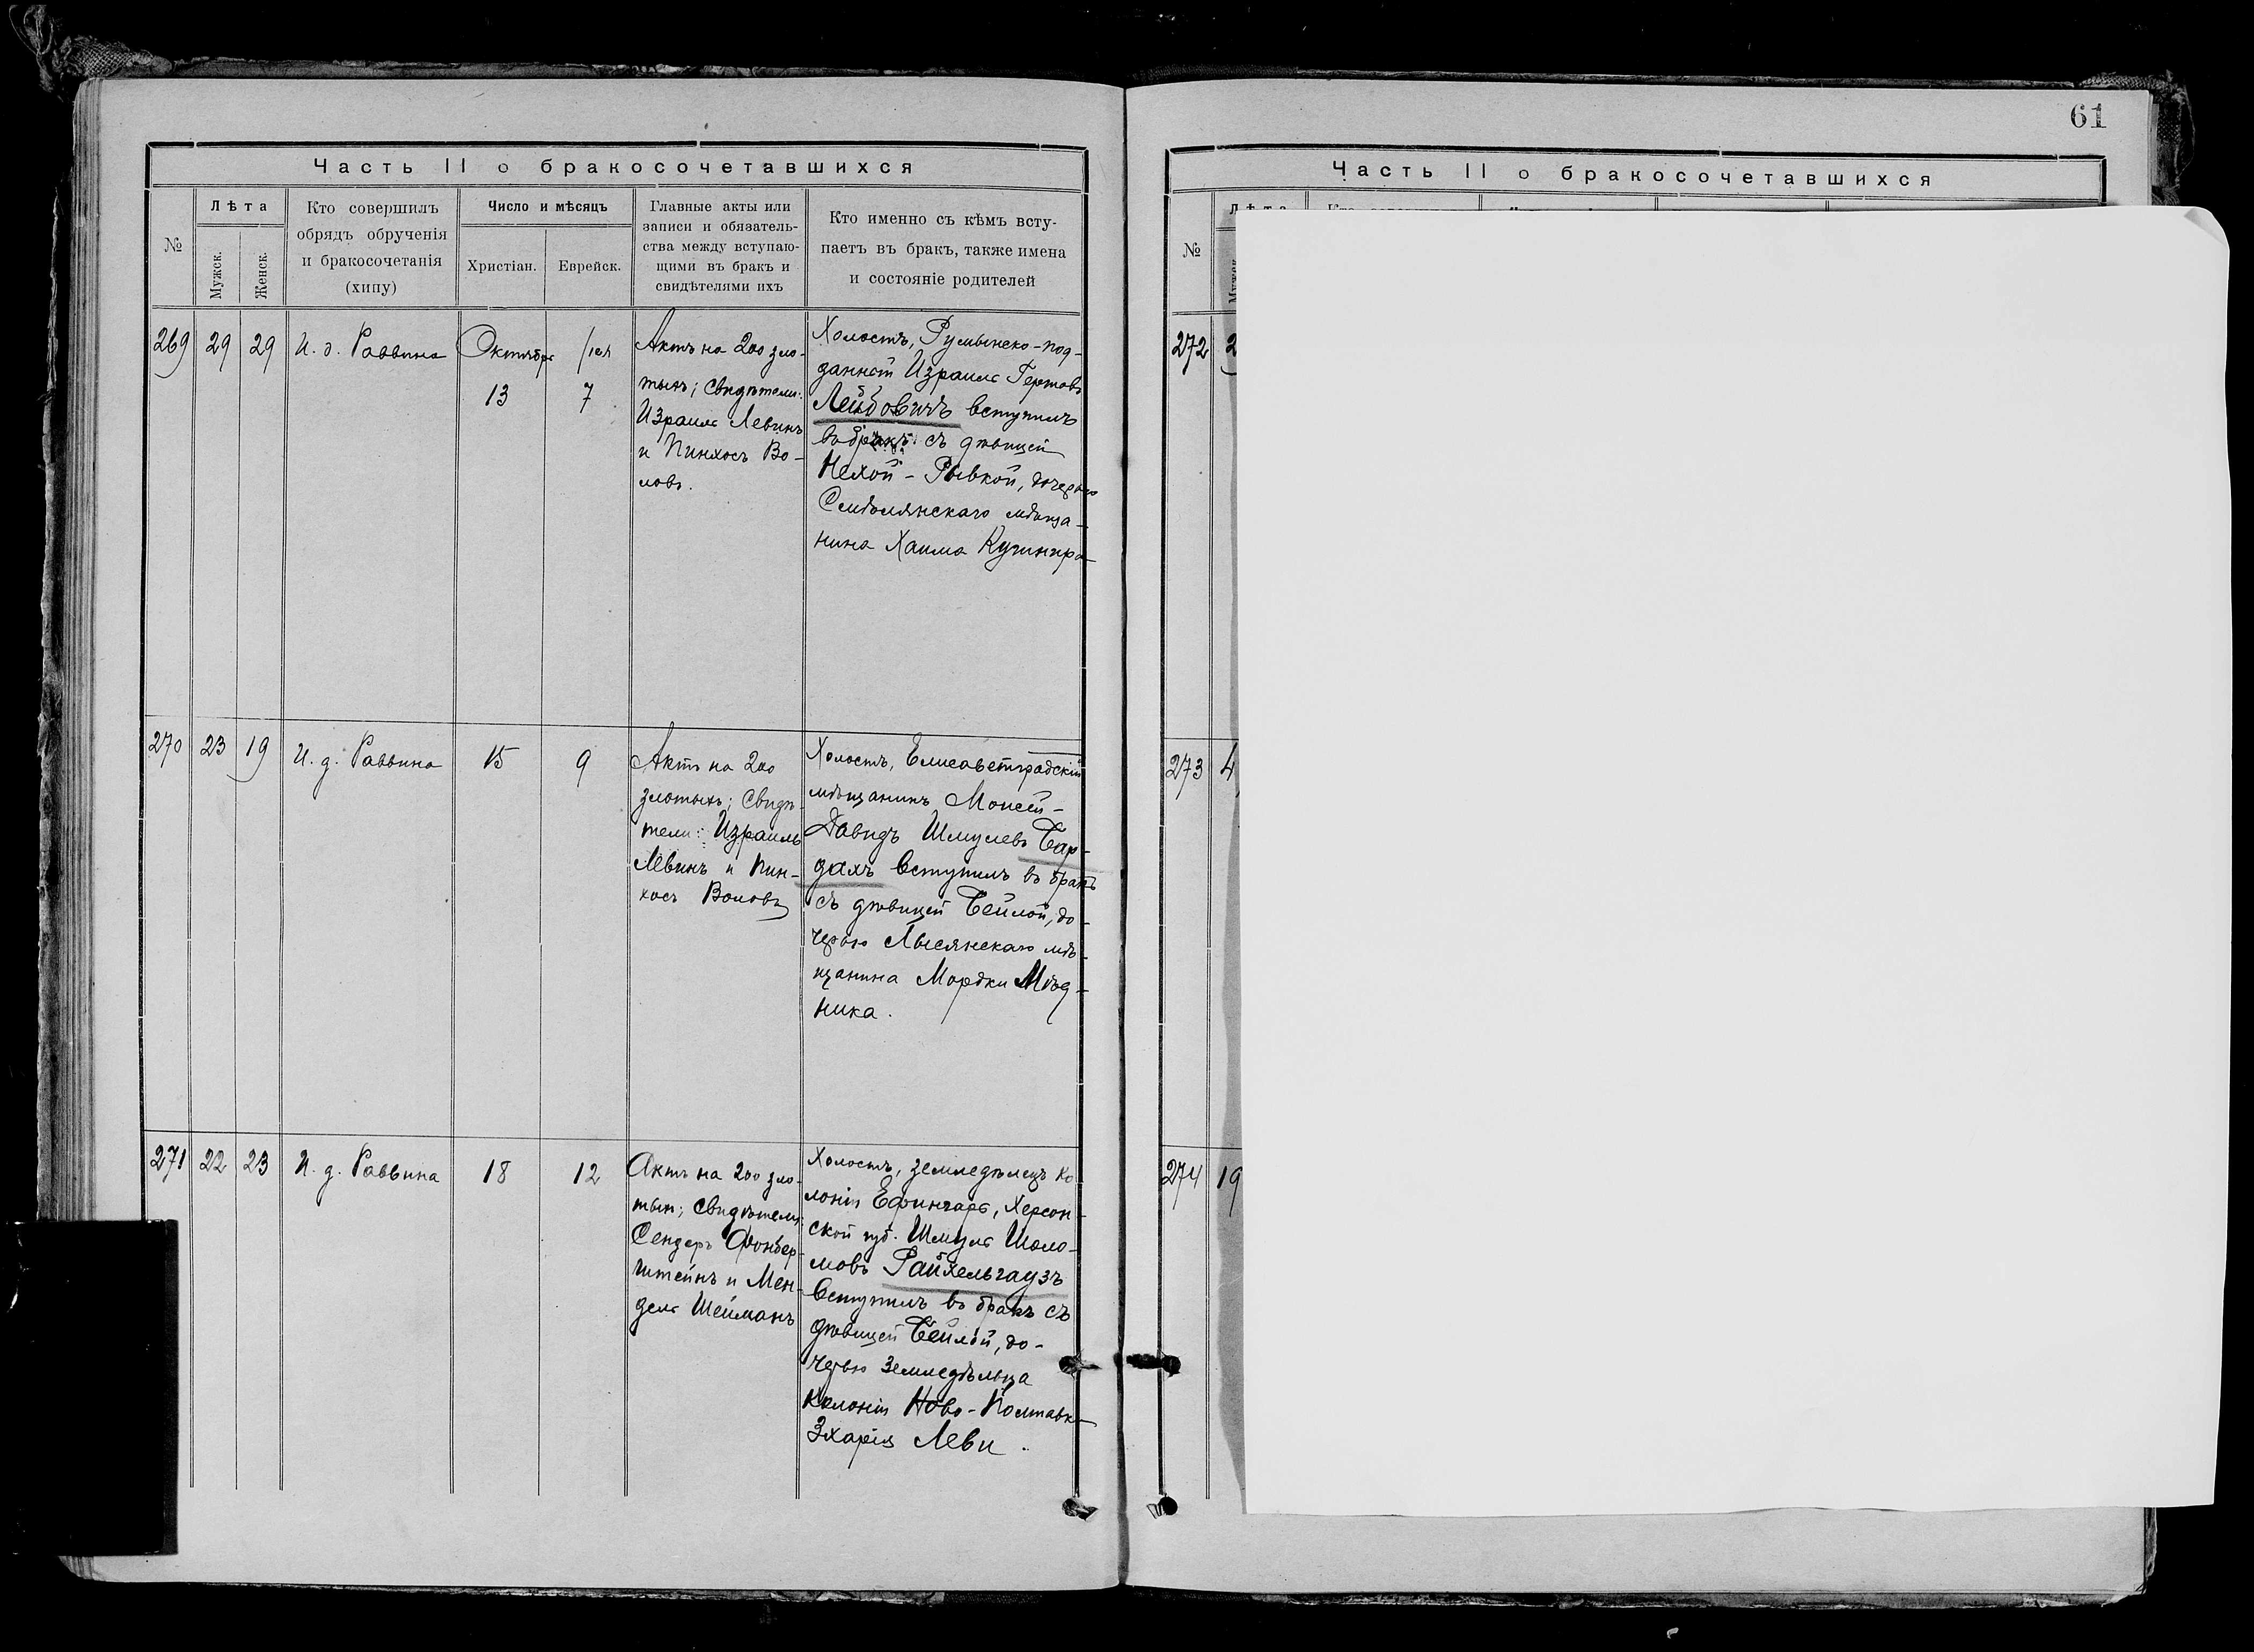 Часть II о бракосочетавшихся
№
Лѣта
Мужск.
Женск.
Кто совершилъ
обрядъ обрученія
и бракосочетанія
(хипу)
Число и мѣсяцъ
Христіан.
Еврейск.
Главные акты или
записи и обязатель-
ства между вступаю-
щими въ бракъ и
свидѣтелями ихъ
Кто именно съ кѣмъ всту-
паетъ въ бракъ, также имена
и состояніе родителей
269
29
29
И. д. Раввина
Октября
13
7
Актъ на 200 зло-
тыхъ; свидѣтели:
Израиль Левинъ
и Пинхосъ Во-
ловъ.
Холостъ, Румынско-под-
данный Израиль
Лейбовичъ вступилъ
въ бракъ съ дѣвицей
Нехой-Рывкой, дочерью
мѣща-
нина Хаима Кушнира
270
23
19
И. д. Раввина
15
9
Актъ на 200
злотыхъ; Свидѣ-
тели: Израиль
Левинъ и Пин-
хосъ Воловъ
Холостъ, Елисаветградскій
мѣщанинъ Моисей-
Давидъ Шмулевъ Бар-
дахъ вступилъ въ бракъ
съ дѣвицей Бейлой, до-
черью Лысянскаго мѣ-
щанина Мордки Мѣд-
ника.
271
22
23
И. д. Раввина
18
12
Актъ на 200 зло-
тых; свидѣтели:
Сендеръ Фонбер-
штейнъ и Мен-
дель Шейманъ
Холостъ, земледѣлецъ ко
лоніи Ефингаръ, Херсон-
ской губ. Шмуль Шоло-
мовъ Райхельгаузъ
вступилъ въ бракъ съ
дѣвицей Бейлой, до-
черью земледѣльца
колоніи Ново-Полтавки
Зхарія Леви.
61
Часть II о бракосочетавшихся
№
Лѣта
272
2
273
4
274
19